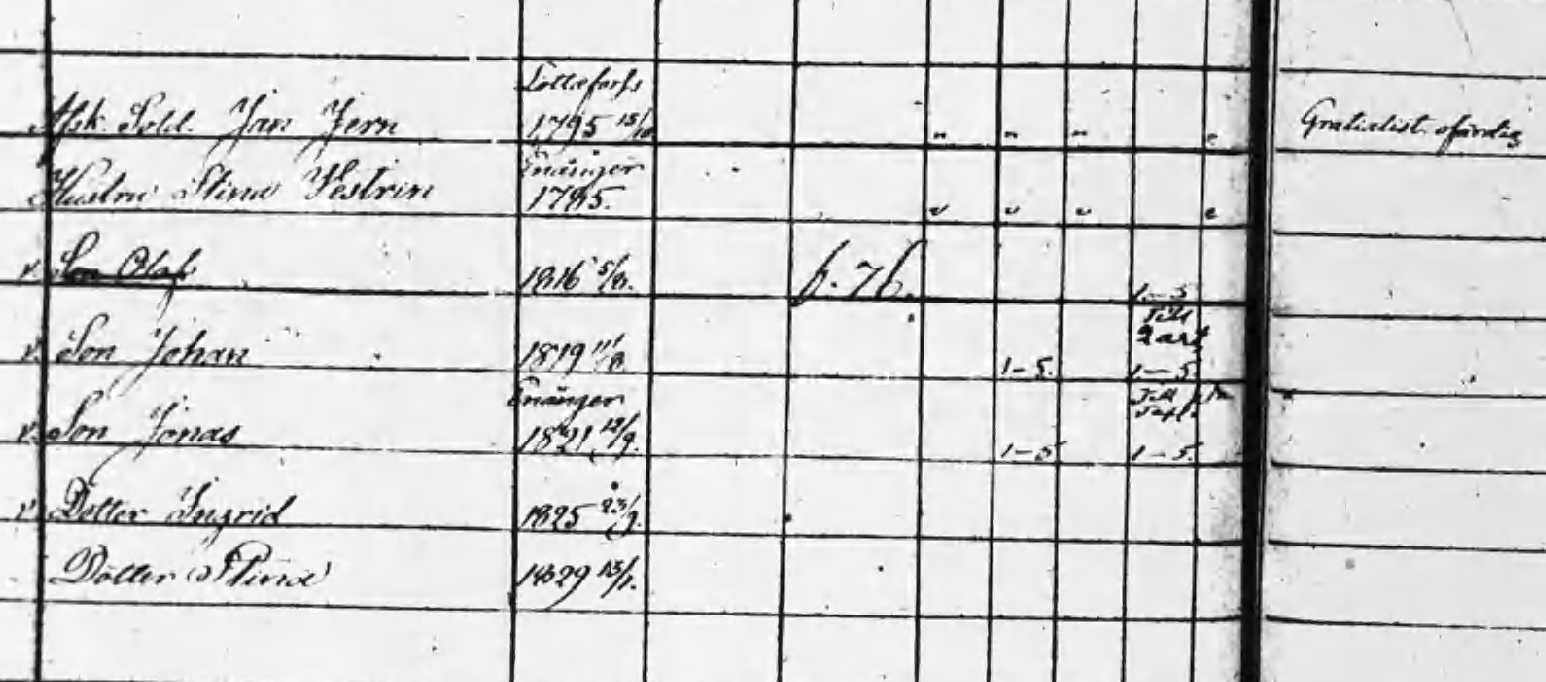 Afsk. Sold. Jan Jern 1795 15/10 " " " " Gratialist. ofärdig
Enånger
Hustru Stina Vestrin 1795.
v. Son Olof 1816 5/8. f. 76. 1-5
Till
v. Son Johan 1819 11/8 1-5. 1-5
Enånger Till
v. Son Jonas 1821 12/9. 1-5 1-5.
v. Dotter Ingrid 1825 23/9.
Dotter Stina 1829 13/1.